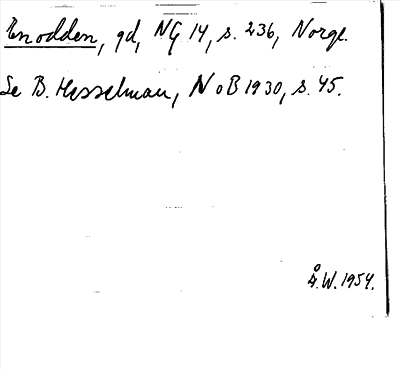 Enodden, gd, NG 14, s. 236, Norge.
Se B. Hesselman, NoB 1930, s. 45.
Å.W. 1954.